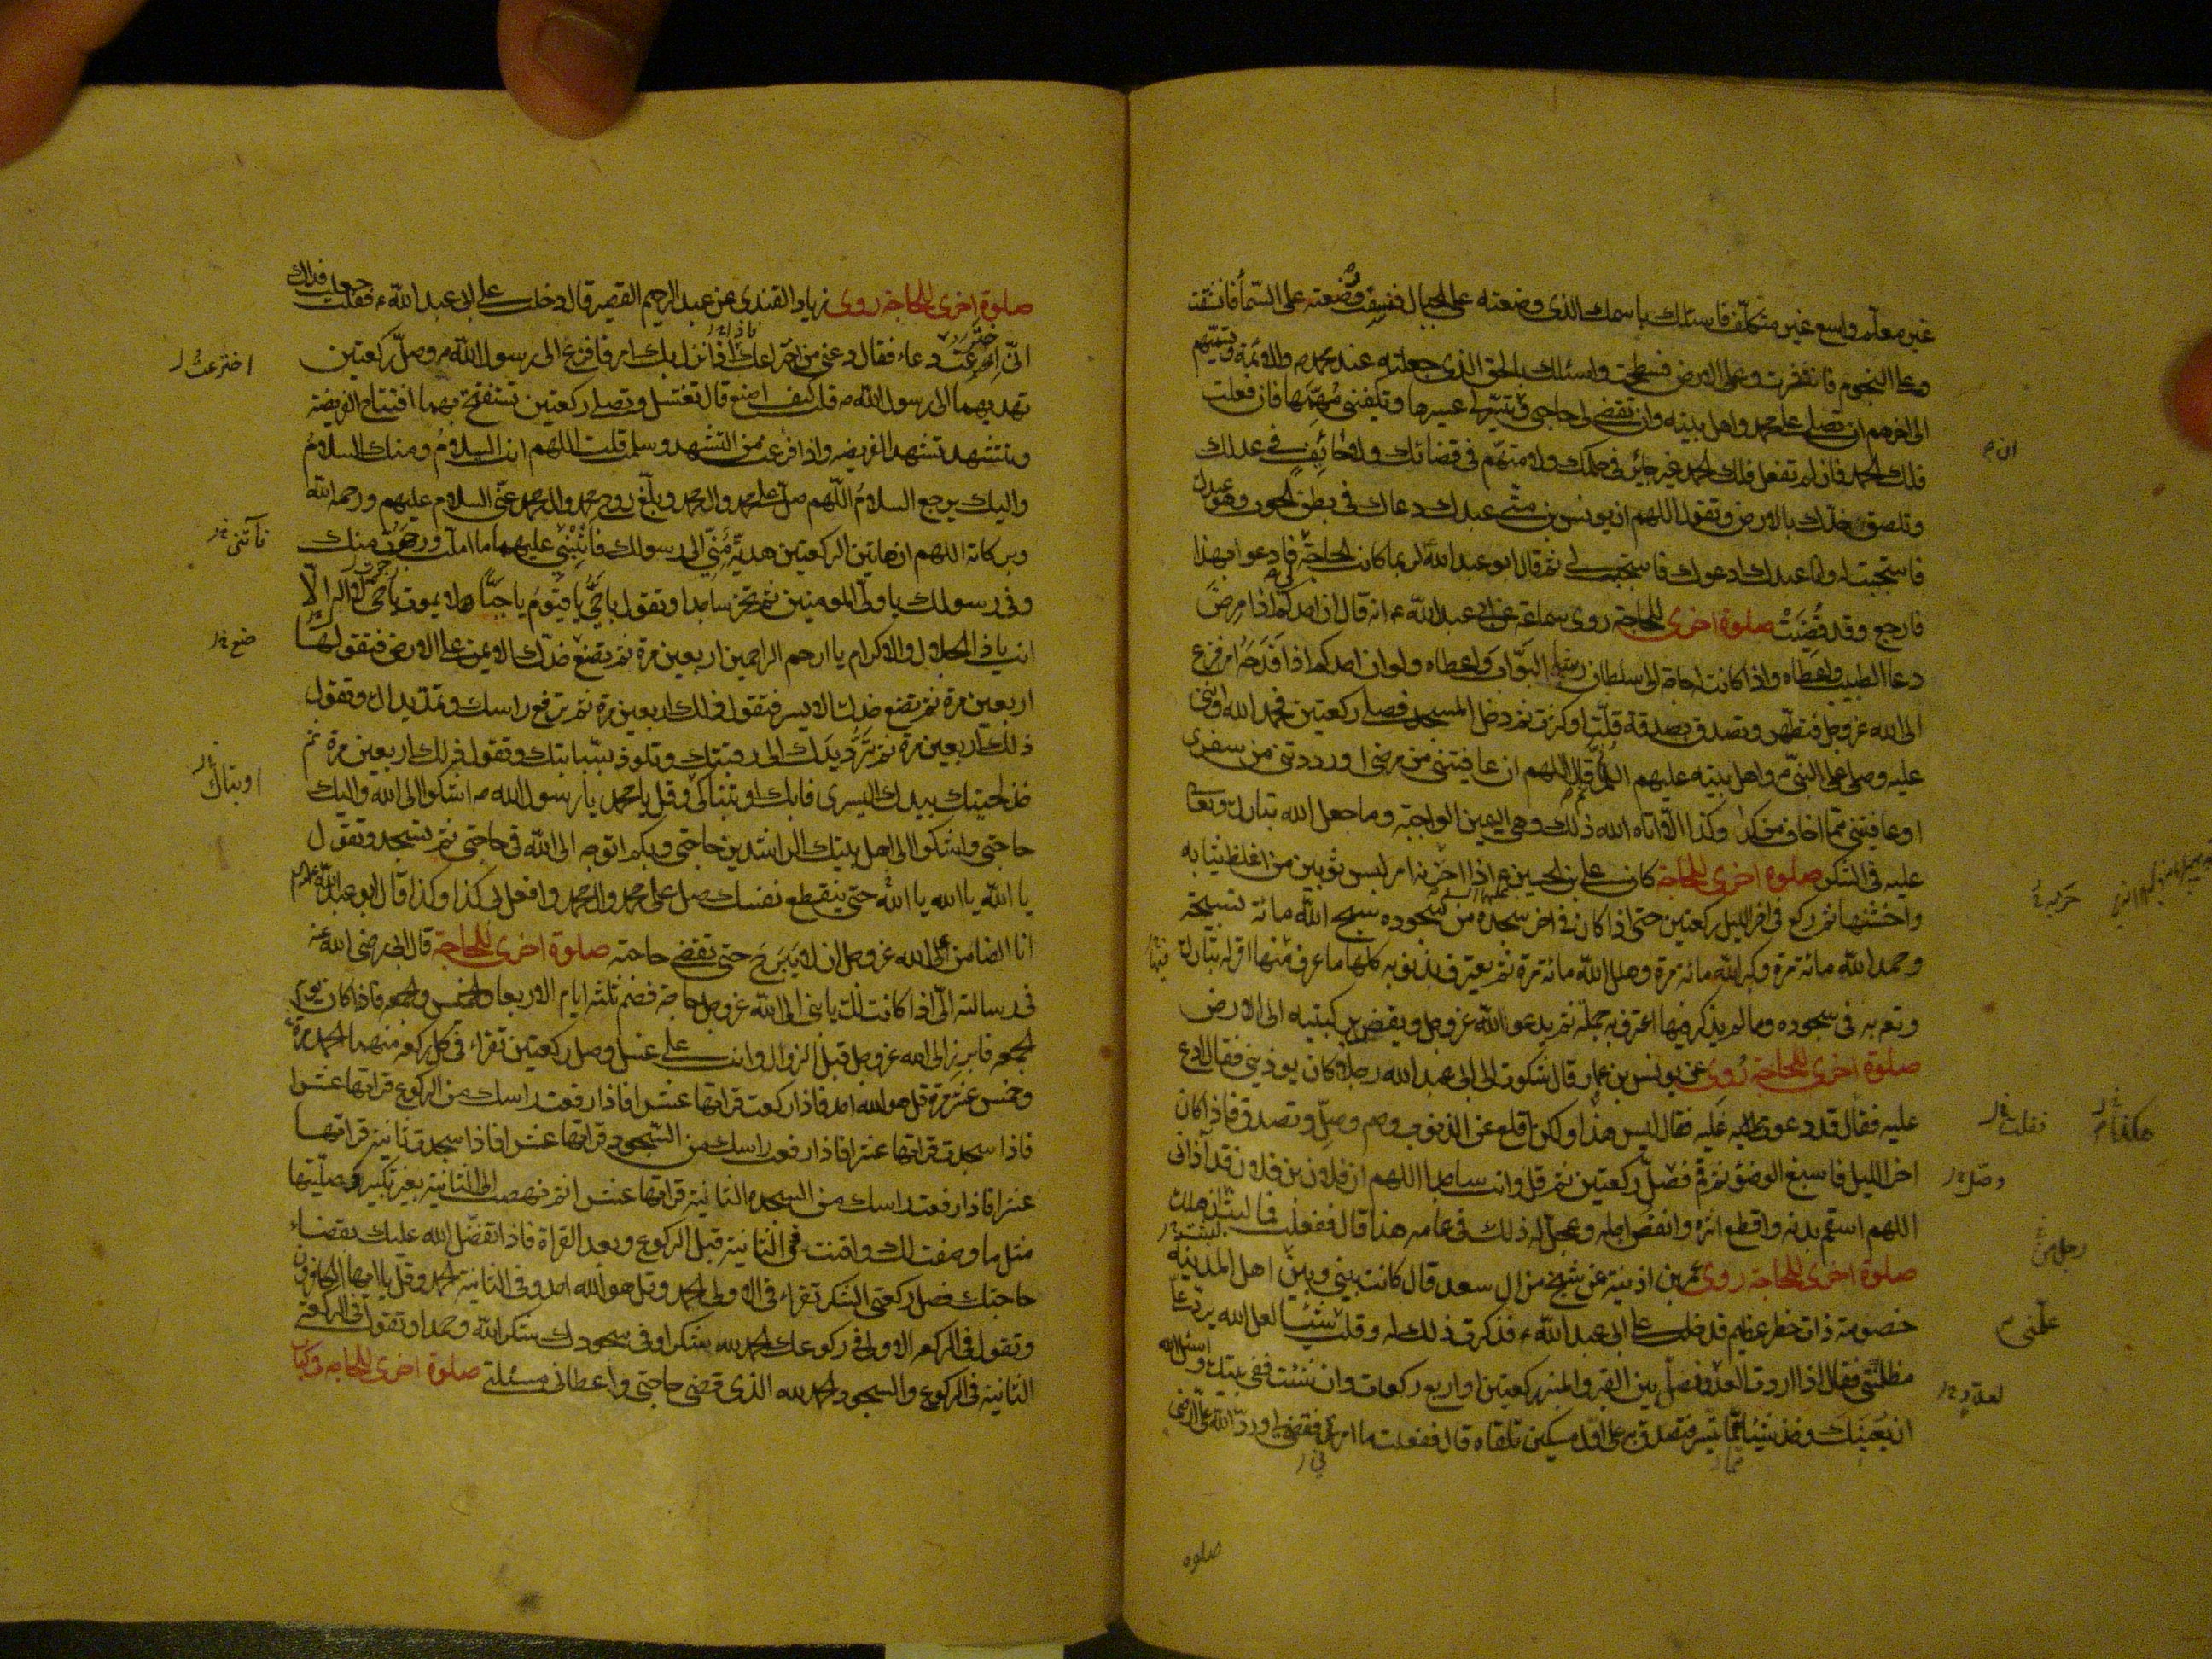 غير معلم واسع غير متكلف فاسئلك باسمك الذى وضعته على الجبال فنسفت ووضعته على السماء فانشقت
وعلى النجوم فانتثرت وعلى الارض فسطحت واسئلك بالحق الذى جعلته عند محمد والائمة وتسميهم
الى اخرهم ان تصلى على محمد واهل بيته وان تقضى لى حاجتى وتيسر لى عسيرها وتكفينى مهمها فان فعلت
فلك الحمد فان لم تفعل فلك الحمد غير جائر فى حكمك ولا متهم فى قضائك ولا حائف فى عدلك
وتلصق خدك بالارض وتقول اللهم ان يونس بن متى عبدك دعاك فى بطن الحوت وهو عبدك
فاستجبت له وانا عبدك ادعوك فاستجب لى ثم قال ابو عبد الله لربما كانت لى الحاجة فادعوا بهذا
فارجع وقد قضيت صلوة اخرى للحاجة روى سماعة عن ابى عبد الله ع انه قال ان احدكم اذا مرض
دعا الطبيب واعطاه واذا كانت له حاجة الى سلطان رشا البواب واعطاه ولو ان احدكم اذا فدحه امر فزع
الى الله عز وجل فتطهر وتصدق بصدقة قلت او كثرت ثم دخل المسجد فصلى ركعتين فحمد الله واثنى
عليه وصلى على النبى واهل بيته عليهم السلم ثم قال اللهم ان عافيتنى من مرضى او رددتنى من سفرى
او عافيتنى مما اخاف من كذا وكذا الا اتاه الله ذلك وهى اليمين الواجبة وما جعل الله تبارك وتعا
عليه فى الشكر صلوة اخرى للحاجة كان على بن الحسين ع اذا احزنه امر لبس ثوبين من اغلظ ثيابه
واخشنها ثم ركع فى اخر الليل ركعتين حتى اذا كان فى اخر سجدة من سجوده سبح الله مائة تسبيحة
وحمد الله مائة مرة وكبر الله مائة مرة وهلل الله مائة مرة ثم يعترف بذنوبه كلها ما عرف منها اقر له تبارك
وتع به فى سجوده وما لم يذكر منها اعترف به جملة ثم يدعو الله عز وجل ويفضى بركبتيه الى الارض
صلوة اخرى للحاجة روى عن يونس بن عمار قال شكوت الى ابى عبد الله رجلا كان يوذينى فقال ادع
عليه فقال قد دعوت عليه فقال ليس هذا ولكن اقلع عن الذنوب وصم وصل وتصدق فاذا كان
اخر الليل فاسبغ الوضوء ثم قم فصل ركعتين ثم قل وانت ساجد اللهم ان فلان بن فلان قد اذانى
اللهم اسقم بدنه واقطع اثره وانقص اجله وعجل له ذلك فى عامه هذا قال ففعلت فما لبث ان هلك
صلوة اخرى للحاجة روى عمر بن اذينة عن شيخ من ال سعد قال كانت بينى وبين اهل المدينة
خصومة ذات خطر عظيم فدخلت على ابى عبد الله ع فذكرت ذلك له وقلت علمنى شيئا لعل الله يرد على
مظلمتى فقال اذا اردت العدو فصل بين القبر والمنبر ركعتين او اربع ركعات وان شئت ففى بيتك واسئل الله
ان يعينك وخذ شيئا مما تيسر فتصدق به على اول مسكين تلقاه قال ففعلت ما امرنى فقضى لى ورد الله على ارضى
صلوه
ان
فقلت
هكذا
وصل
رجل من
علمنى
صلوة اخرى للحاجة روى زياد القندى عن عبد الرحيم القصير قال دخلت على ابى عبد الله ع فقلت جعلت فداك
انى اخترعت دعاء فقال دعنى من اختراعك اذا نزل بك امر فافزع الى رسول الله وصل ركعتين
تهديهما الى رسول الله ص قلت كيف اصنع قال تغتسل وتصلى ركعتين تستفتح بهما افتتاح الفريضة
وتتشهد تشهد الفريضه واذا فرغت من التشهد وسلمت قلت اللهم انت السلام ومنك السلام
واليك يرجع السلام اللهم صل على محمد وال محمد وبلغ روح محمد وال محمد عنى السلام عليهم ورحمة الله
وبركاته اللهم ان هاتين الركعتين هدية منى الى رسولك فاثبنى عليهما ما املت ورجوت منك
وفى رسولك يا ولى المومنين ثم تخر ساجدا وتقول يا حى يا قيوم يا حيا لا يموت يا حى لا اله الا
انت يا ذا الجلال والاكرام يا ارحم الراحمين اربعين مرة ثم تضع خدك الايمن على الارض فتقولها
اربعين مرة ثم تضع خدك الايسر فتقول ذلك اربعين مرة ثم ترفع راسك وتمد يدك وتقول
ذلك اربعين مرة ثم ترد يدك الى رقبتك وتلوذ بسبابتك وتقول ذلك اربعين مرة ثم
خذ لحيتك بيدك اليسرى فابك او تباكى وقل يا محمد يا رسول الله ص اشكوا الى الله واليك
حاجتى واشكوا الى اهل بيتك الراشدين حاجتى وبكم اتوجه الى الله فى حاجتى ثم تسجد وتقول
يا الله يا الله يا الله حتى ينقطع نفسك صل على محمد وال محمد وافعل بى كذا وكذا قال ابو عبد الله
انا الضامن على الله عز وجل ان لا يبرح حتى تقضى حاجته صلوة اخرى للحاجة قال ابى رضى الله عنه
فى رسالته الى اذا كانت لك يا بنى الى الله عز وجل حاجة فصم ثلثة ايام الاربعاء والخميس والجمعه فاذا كان يوم
الجمعه فابرز الى الله عز وجل قبل الزوال وانت على غسل وصل ركعتين تقراء فى كل ركعة منهما الحمد مرة
وخمس عشر مرة قل هو الله احد فاذا ركعت قراتها عشرا فاذا رفعت راسك من الركوع قراتها عشرا
فاذا سجدت قراتها عشرا فاذا رفعت راسك من السجود قراتها عشرا فاذا سجدت ثانية قراتها
عشرا فاذا رفعت راسك من السجده الثانية قراتها عشرا ثم نهضت الى الثانية بغير تكبير وصليتها
مثل ما وصفت لك واقنت فى الثانية قبل الركوع وبعد القراة فاذا تفضل الله عليك بقضاء
حاجتك فصل ركعتى الشكر تقراء فى الاولى الحمد وقل هو الله احد وفى الثانية الحمد وقل يا ايها الكافرون
وتقول فى الركعه الاولى فى ركوعك الحمد لله شكرا وفى سجودك شكرا لله وحمدا وتقول فى الركعة
الثانية فى الركوع والسجود الحمد لله الذى قضى حاجتى واعطانى مسئلتى صلوة اخرى للحاجه
اخترعت